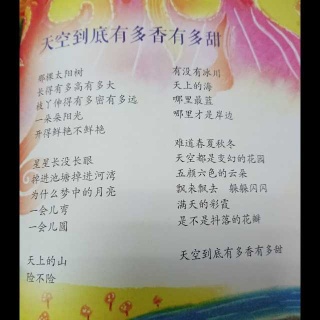 天空到底有多香有多甜
那棵太阳树
长得有多高有多大
枝丫伸得有多密有多远
一朵朵阳光
开得鲜艳不鲜艳
星星长没长眼
掉进池塘掉进河湾
为什么梦中的月亮
一会儿弯
一会儿圆
天上的山
险不险
有没有冰川
天上的海
哪里最蓝
哪里才是岸边
难道春夏秋冬
天空都是变幻的花园
五颜六色的云朵
飘来飘去 躲躲闪闪
满天的彩霞
是不是抖落的花瓣
天空到底有多香有多甜